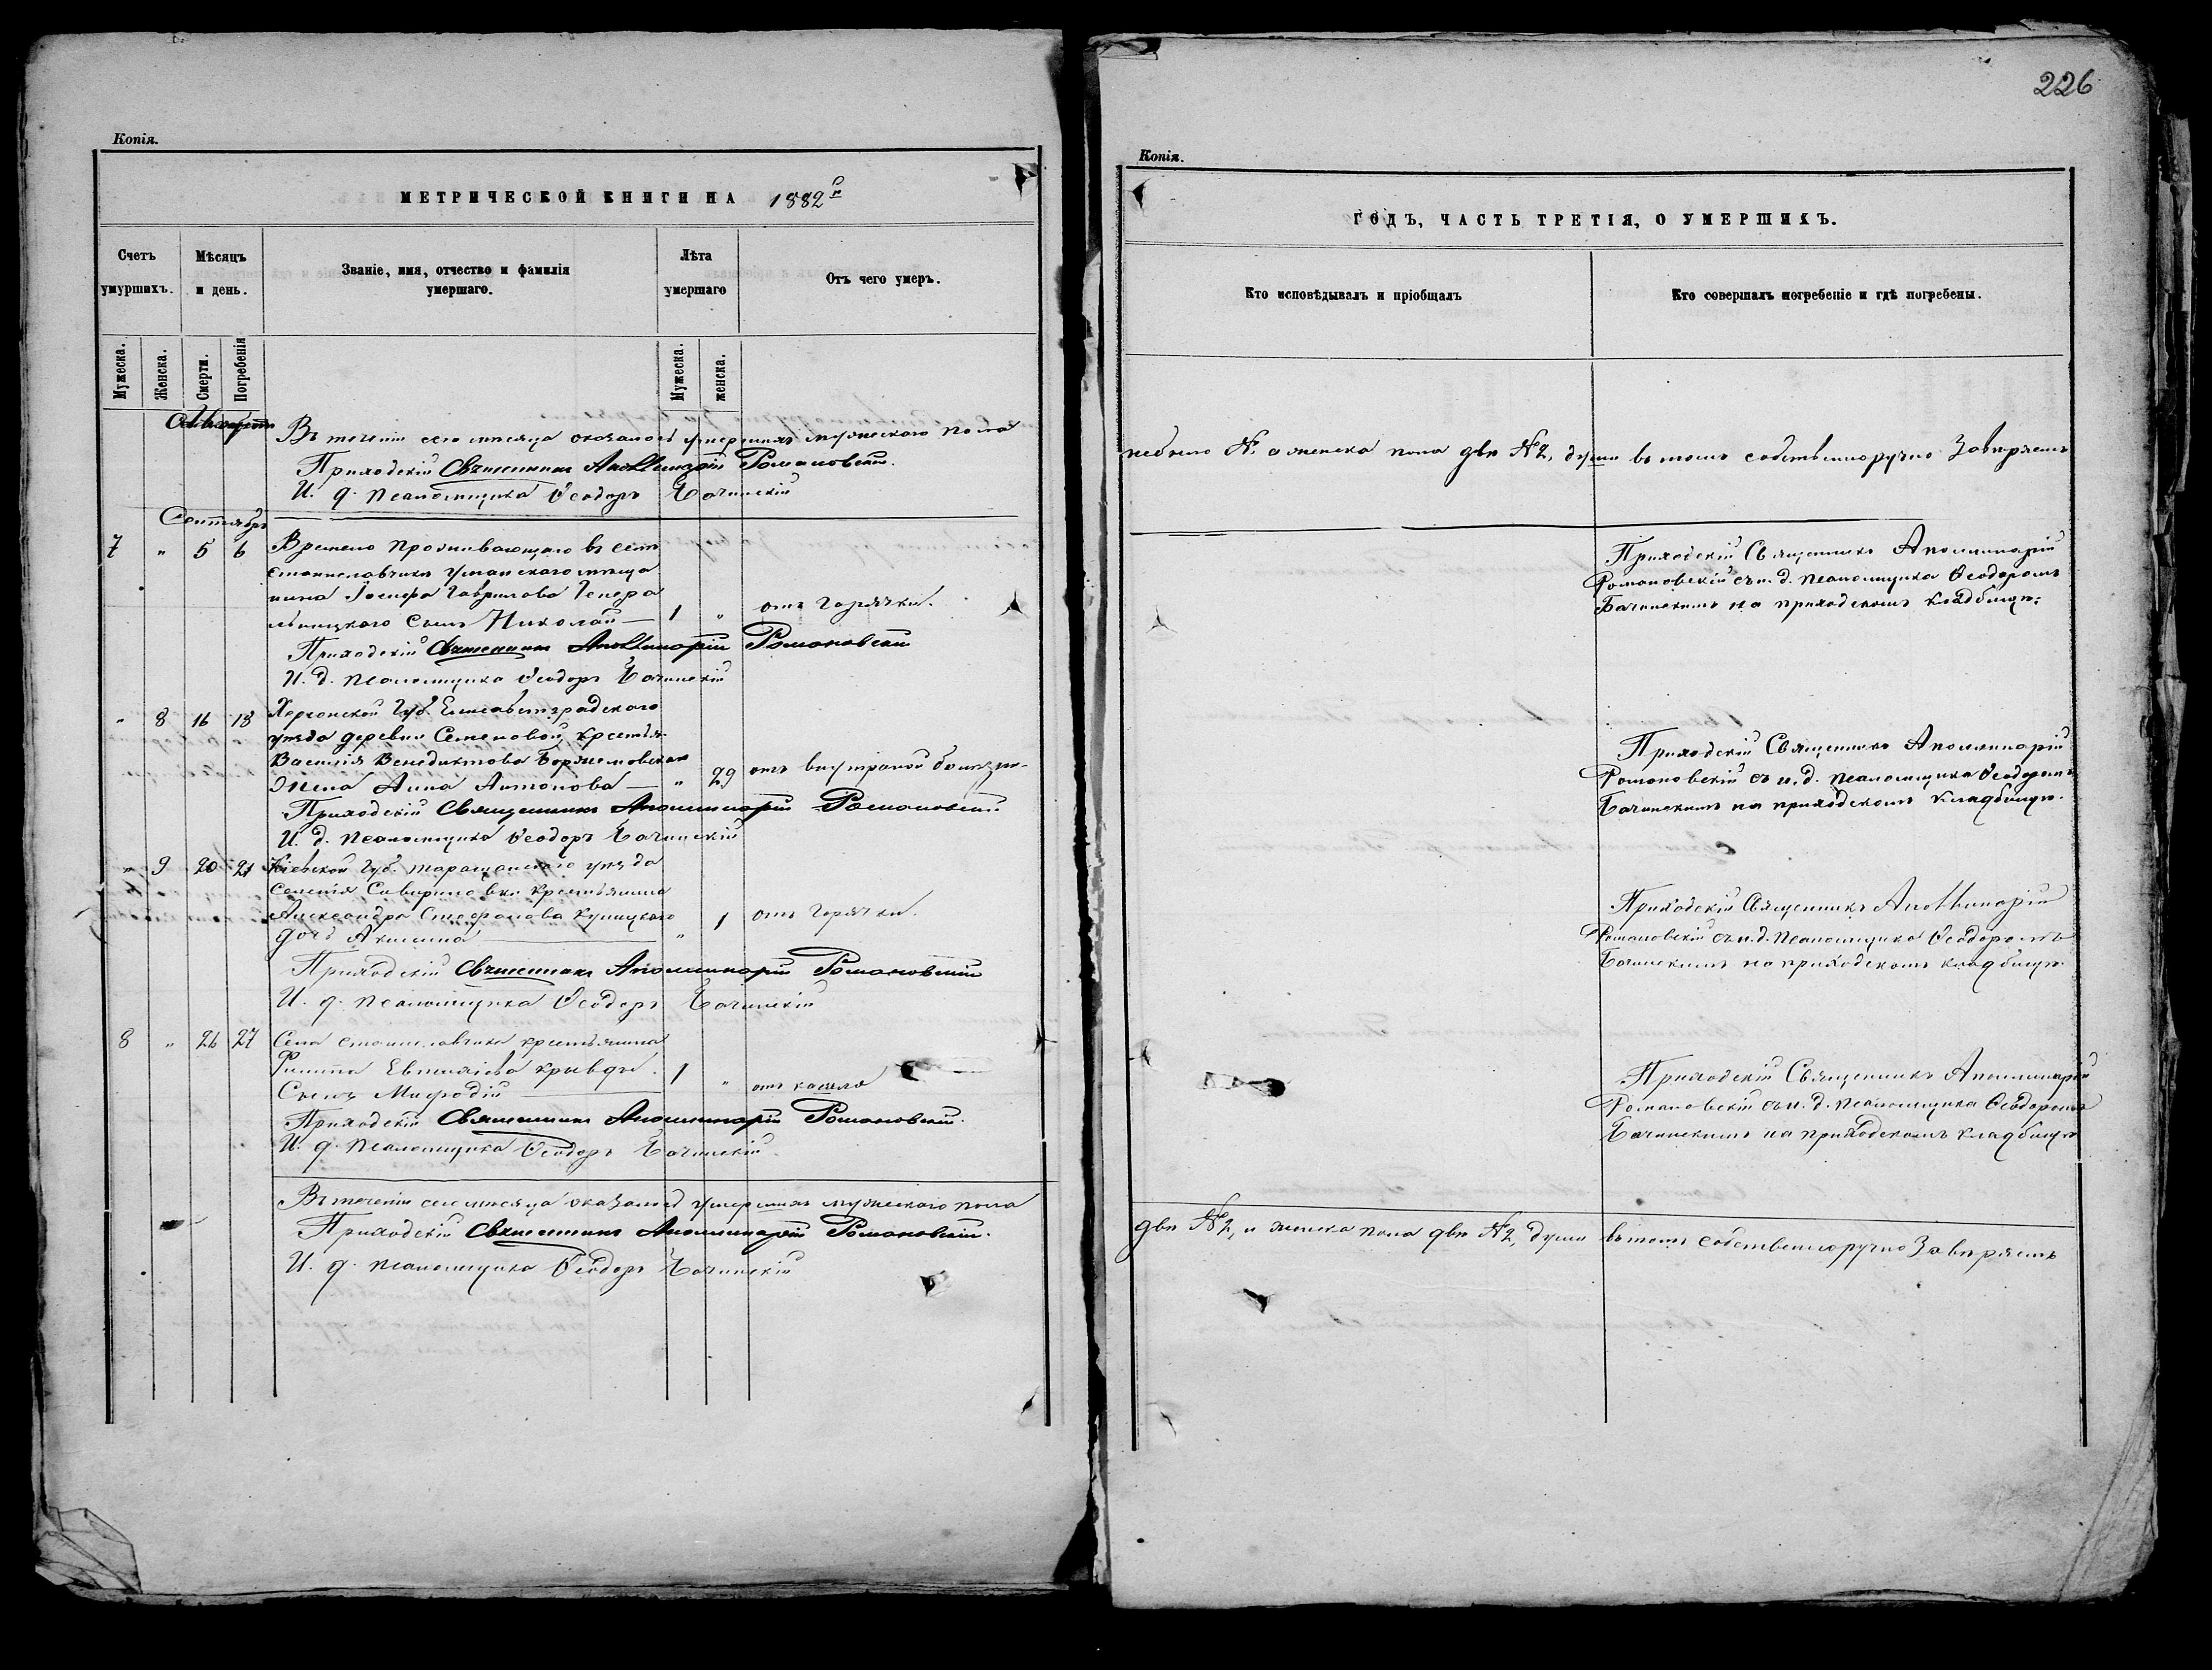 226
Копія.
МЕТРИЧЕСКОЙ КНИГИ НА 1882 г
Счетъ умуршихъ.
Мѣсяцъ и день.
Званіе, имя, отчество и фамилія умершаго.
Лѣта умершаго
Отъ чего умеръ.
Мужеска.
Женска.
Смерти.
Погребенія
Мужеска.
женска.
Августъ
Въ теченіи сего мѣсяца оказалось умершихъ мужескаго пола
Приходскій Священникъ Аполлинарій Романовскій.
И. д. псаломщика Ѳеодоръ Бачинскій
Сентябрь
7 " 5 6 Времено проживающаго въ селѣ
Станиславчикѣ Уманскаго мѣща
нина Іосифа Гаврилова Генера
льницкаго сынъ Николай — 1 " отъ горячки.
Приходскій Священникъ Аполлинарій Романовскій
И. д. псаломщика Ѳеодоръ Бачинскій
" 8 16 18 Херсонской Губ. Елисаветградскаго
уѣзда деревни Семеновой, крестья.
Василія Венедиктова
жена Анна Антонова — " 29 отъ внутраной болѣзни.
Приходскій Священникъ Аполлинарій Романовскій
И. д. псаломщика Ѳеодоръ Бачинскій
" 9 20 21 Кіевской Губ. Таращанскаго уѣзда
селенія Савириновки крестьянина
Александра Стефанова Куницкаго
дочь Акилина — " 1 отъ горячки.
Приходскій Священникъ Аполлинарій Романовскій
И. д. псаломщика Ѳеодоръ Бачинскій
8 " 26 27 Села Станиславчика крестьянина
Филиппа Евтихіева Кривды.
Сынъ Мифодій — 1 " отъ кашля
Приходскій Священникъ Аполлинарій Романовскій.
И. д. псаломщика Ѳеодоръ Бачинскій.
Въ теченіи сего мѣсяца оказалось умершихъ мужескаго пола
Приходскій Священникъ Аполлинарій Романовскій.
И. д. псаломщика Ѳеодоръ Бачинскій
Копія.
ГОДЪ, ЧАСТЬ ТРЕТІЯ, О УМЕРШИХЪ.
Кто исповѣдывалъ и пріобщалъ
Кто совершалъ погребеніе и гдѣ погребены.
небыло №. а женска пола двѣ №2, души въ томъ собственноручно Завѣряемъ
Приходскій Священникъ Аполлинарій
Романовскій съ и. д. псаломщика Ѳеодоромъ
Бачинскимъ на приходскомъ кладбищѣ.
Приходскій Священникъ Аполлинарій
Романовскій съ и. д. псаломщика Ѳеодоромъ
Бачинскимъ на приходскомъ кладбищѣ.
Приходскій Священникъ Аполлинарій
Романовскій съ и. д. псаломщика Ѳеодоромъ
Бачинскимъ на приходскомъ кладбищѣ.
Приходскій Священникъ Аполлинарій
Романовскій съ и. д. псаломщика Ѳеодоромъ
Бачинскимъ на приходскомъ кладбищѣ
двѣ №2, и женска пола двѣ №2, души въ томъ собственноручно Завѣряемъ